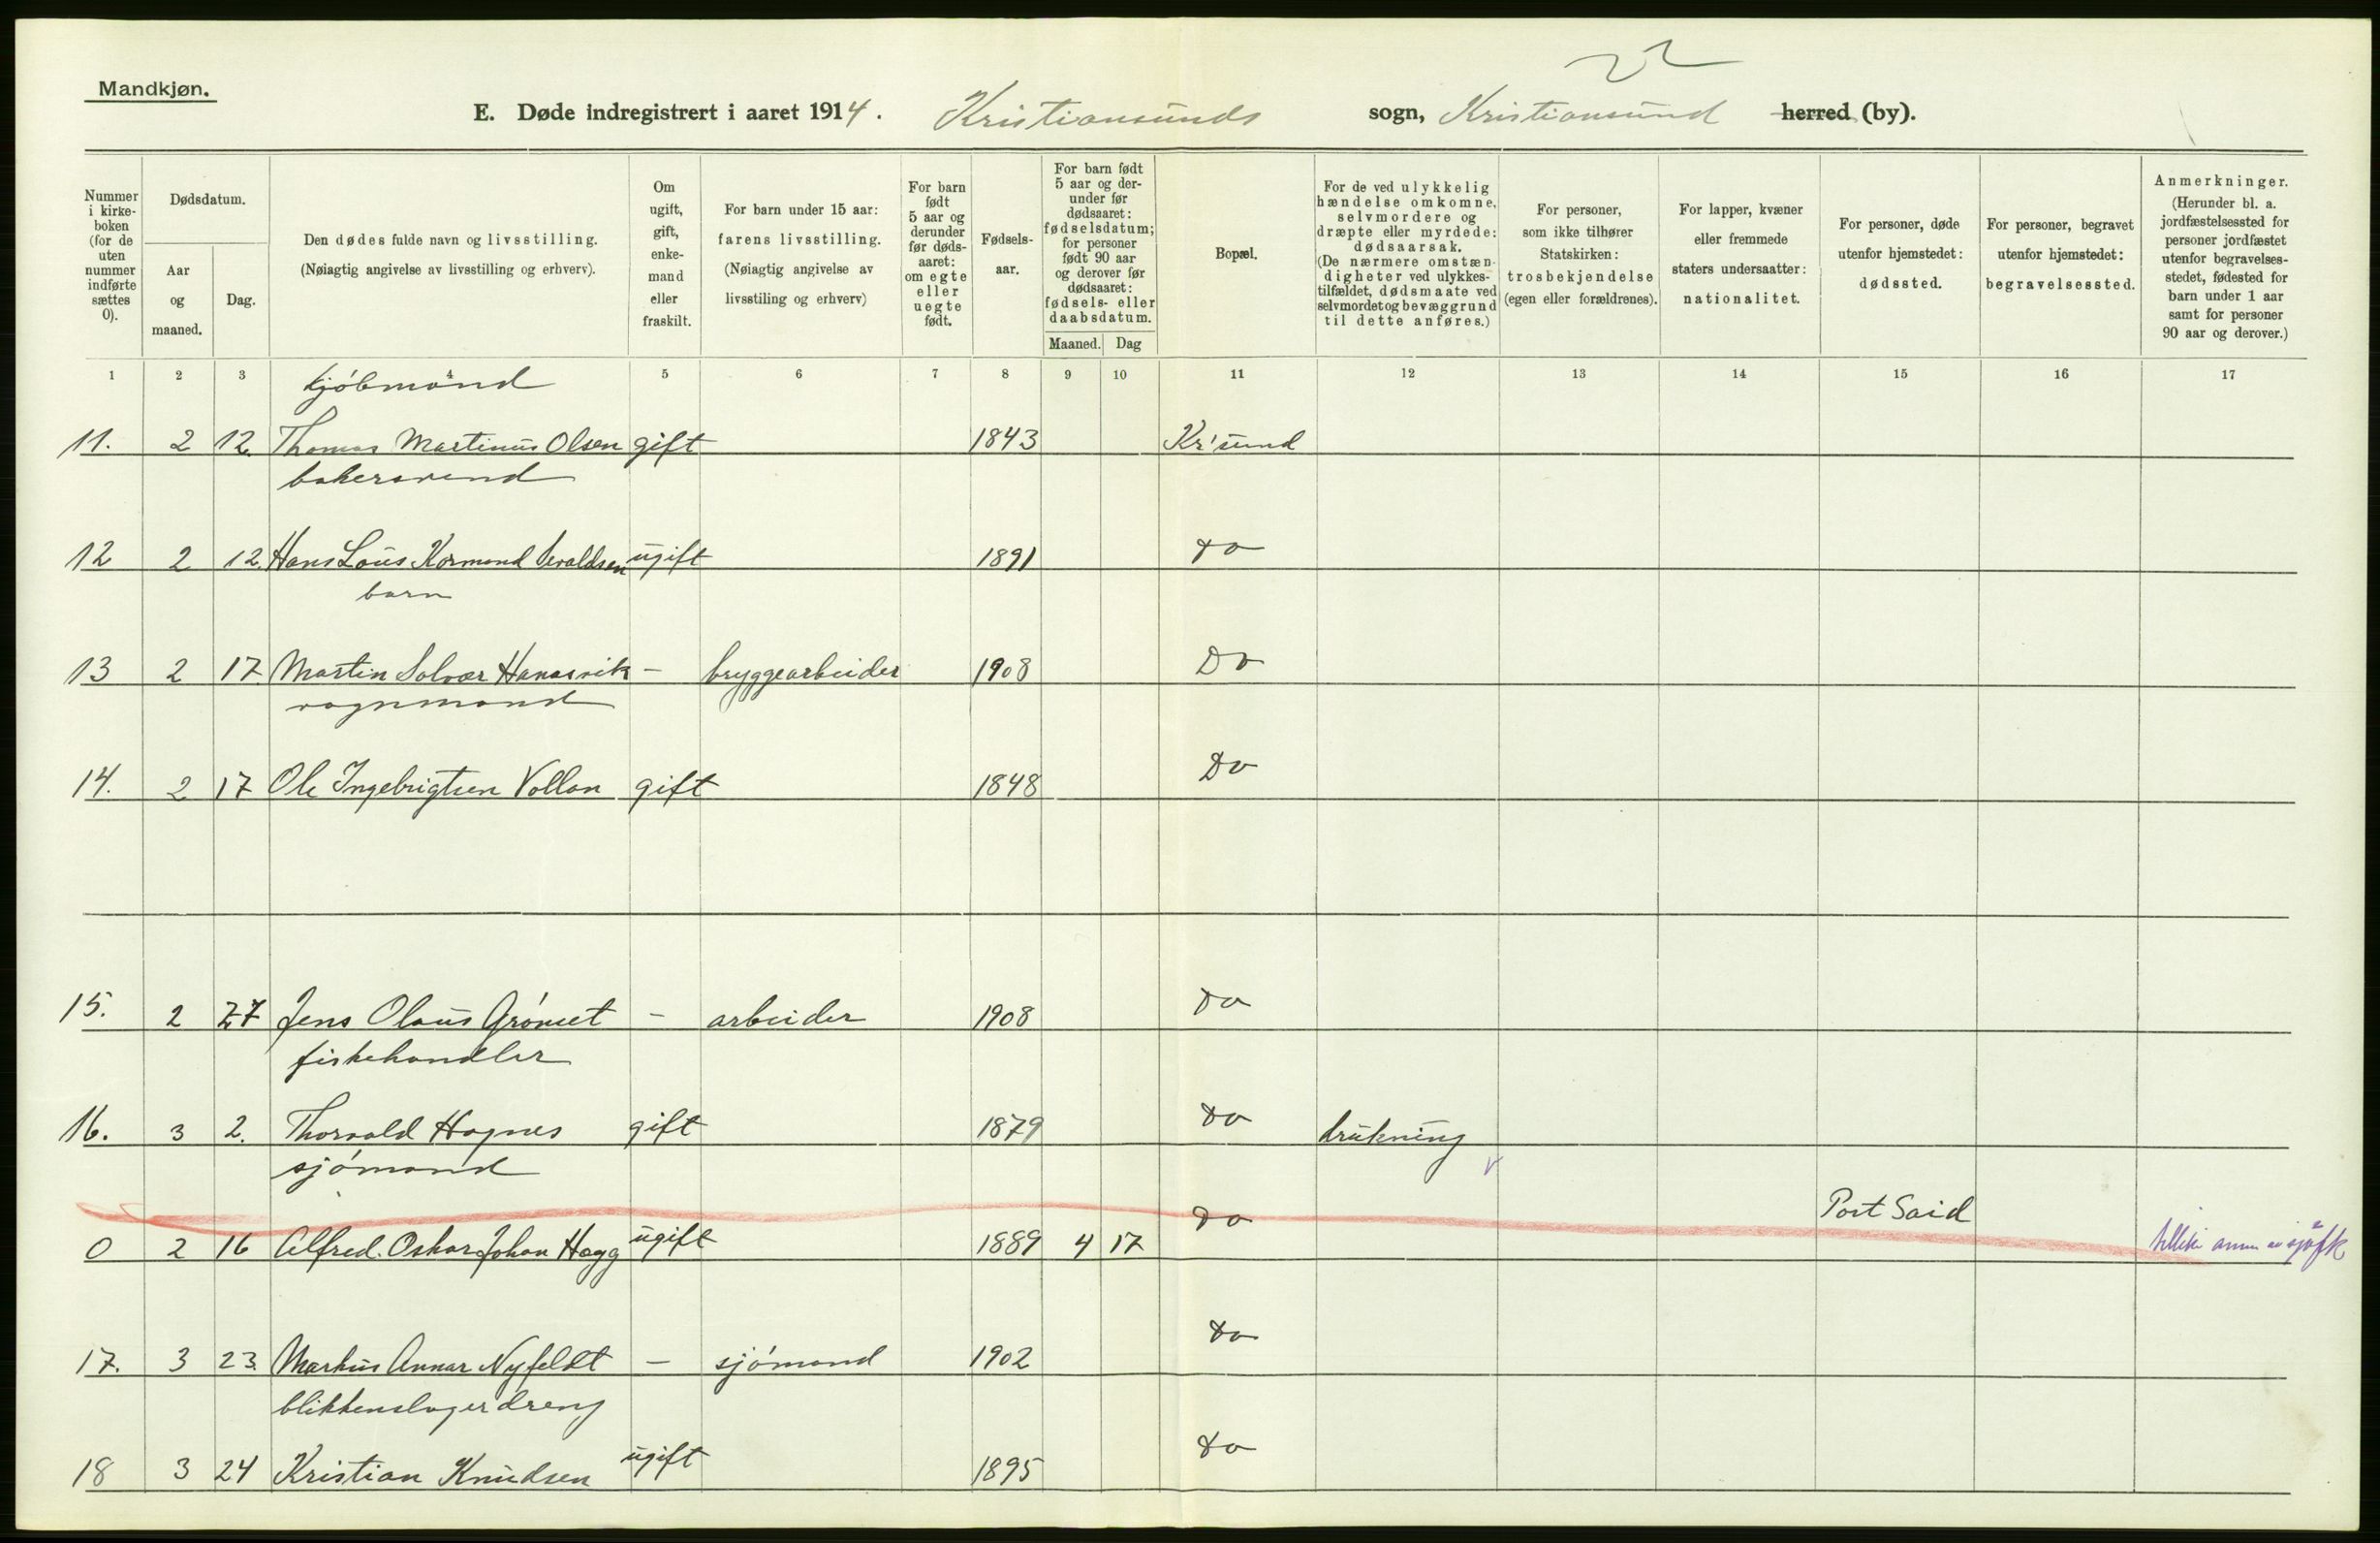 22
Mandkjøn.
E. Døde indregistrert i aaret 1914. Kristiansunds sogn, Kristiansund herred (by).
Nummer i kirkeboken (for de uten nummer indførte sættes 0).
Dødsdatum.
Aar og maaned.
Dag.
Den dødes fulde navn og livsstilling.
(Nøiagtig angivelse av livsstilling og erhverv).
Om ugift, gift, enkemand eller fraskilt.
For barn under 15 aar: farens livsstilling.
(Nøiagtig angivelse av livsstiling og erhverv)
For barn født 5 aar og derunder før dødsaaret: om egte eller uegte født.
Fødselsaar.
For barn født 5 aar og derunder før dødsaaret: fødselsdatum; for personer født 90 aar og derover før dødsaaret: fødsels- eller daabsdatum.
Maaned. Dag
Bopæl.
For de ved ulykkelig hændelse omkomne, selvmordere og dræpte eller myrdede: dødsaarsak.
(De nærmere omstændigheter ved ulykkestilfældet, dødsmaate ved selvmordet og bevæggrund til dette anføres.)
For personer, som ikke tilhører Statskirken: trosbekjendelse (egen eller forældrenes).
For lapper, kvæner eller fremmede staters undersaatter: nationalitet.
For personer, døde utenfor hjemstedet: dødssted.
For personer, begravet utenfor hjemstedet: begravelsessted.
Anmerkninger.
(Herunder bl. a. jordfæstelsessted for personer jordfæstet utenfor begravelsesstedet, fødested for barn under 1 aar samt for personer 90 aar og derover.)
1 2 3 4 5 6 7 8 9 10 11 12 13 14 15 16 17
kjóbmand
11. 2 12. Thomas Martinus Olsen gift 1843 Kr'sund
bakersvend
12 2 12. Hans Louis Kormend Sevaldsen ugift 1891 Do
barn
13 2 17. Martin Solvar Hanasvik - bryggearbeider 1908 Do
vognmand
14. 2 17 Ole Ingebrigtsen Vollan gift 1848 Do
15. 2 27 Jens Olaus Grónset - arbeider 1908 Do
fiskehandler
16. 3 2. Thorvald Hagnes gift 1879 Do drukning
sjómand
0 2 16 Alfred Oskar Johan Hagg ugift 1889 4 17 Do Port Said
17. 3 23. Markus Annar Nyfeldt - sjómand 1902 Do
blikkenslagerdreng
18 3 24 Kristian Knudsen ugift 1895 Do